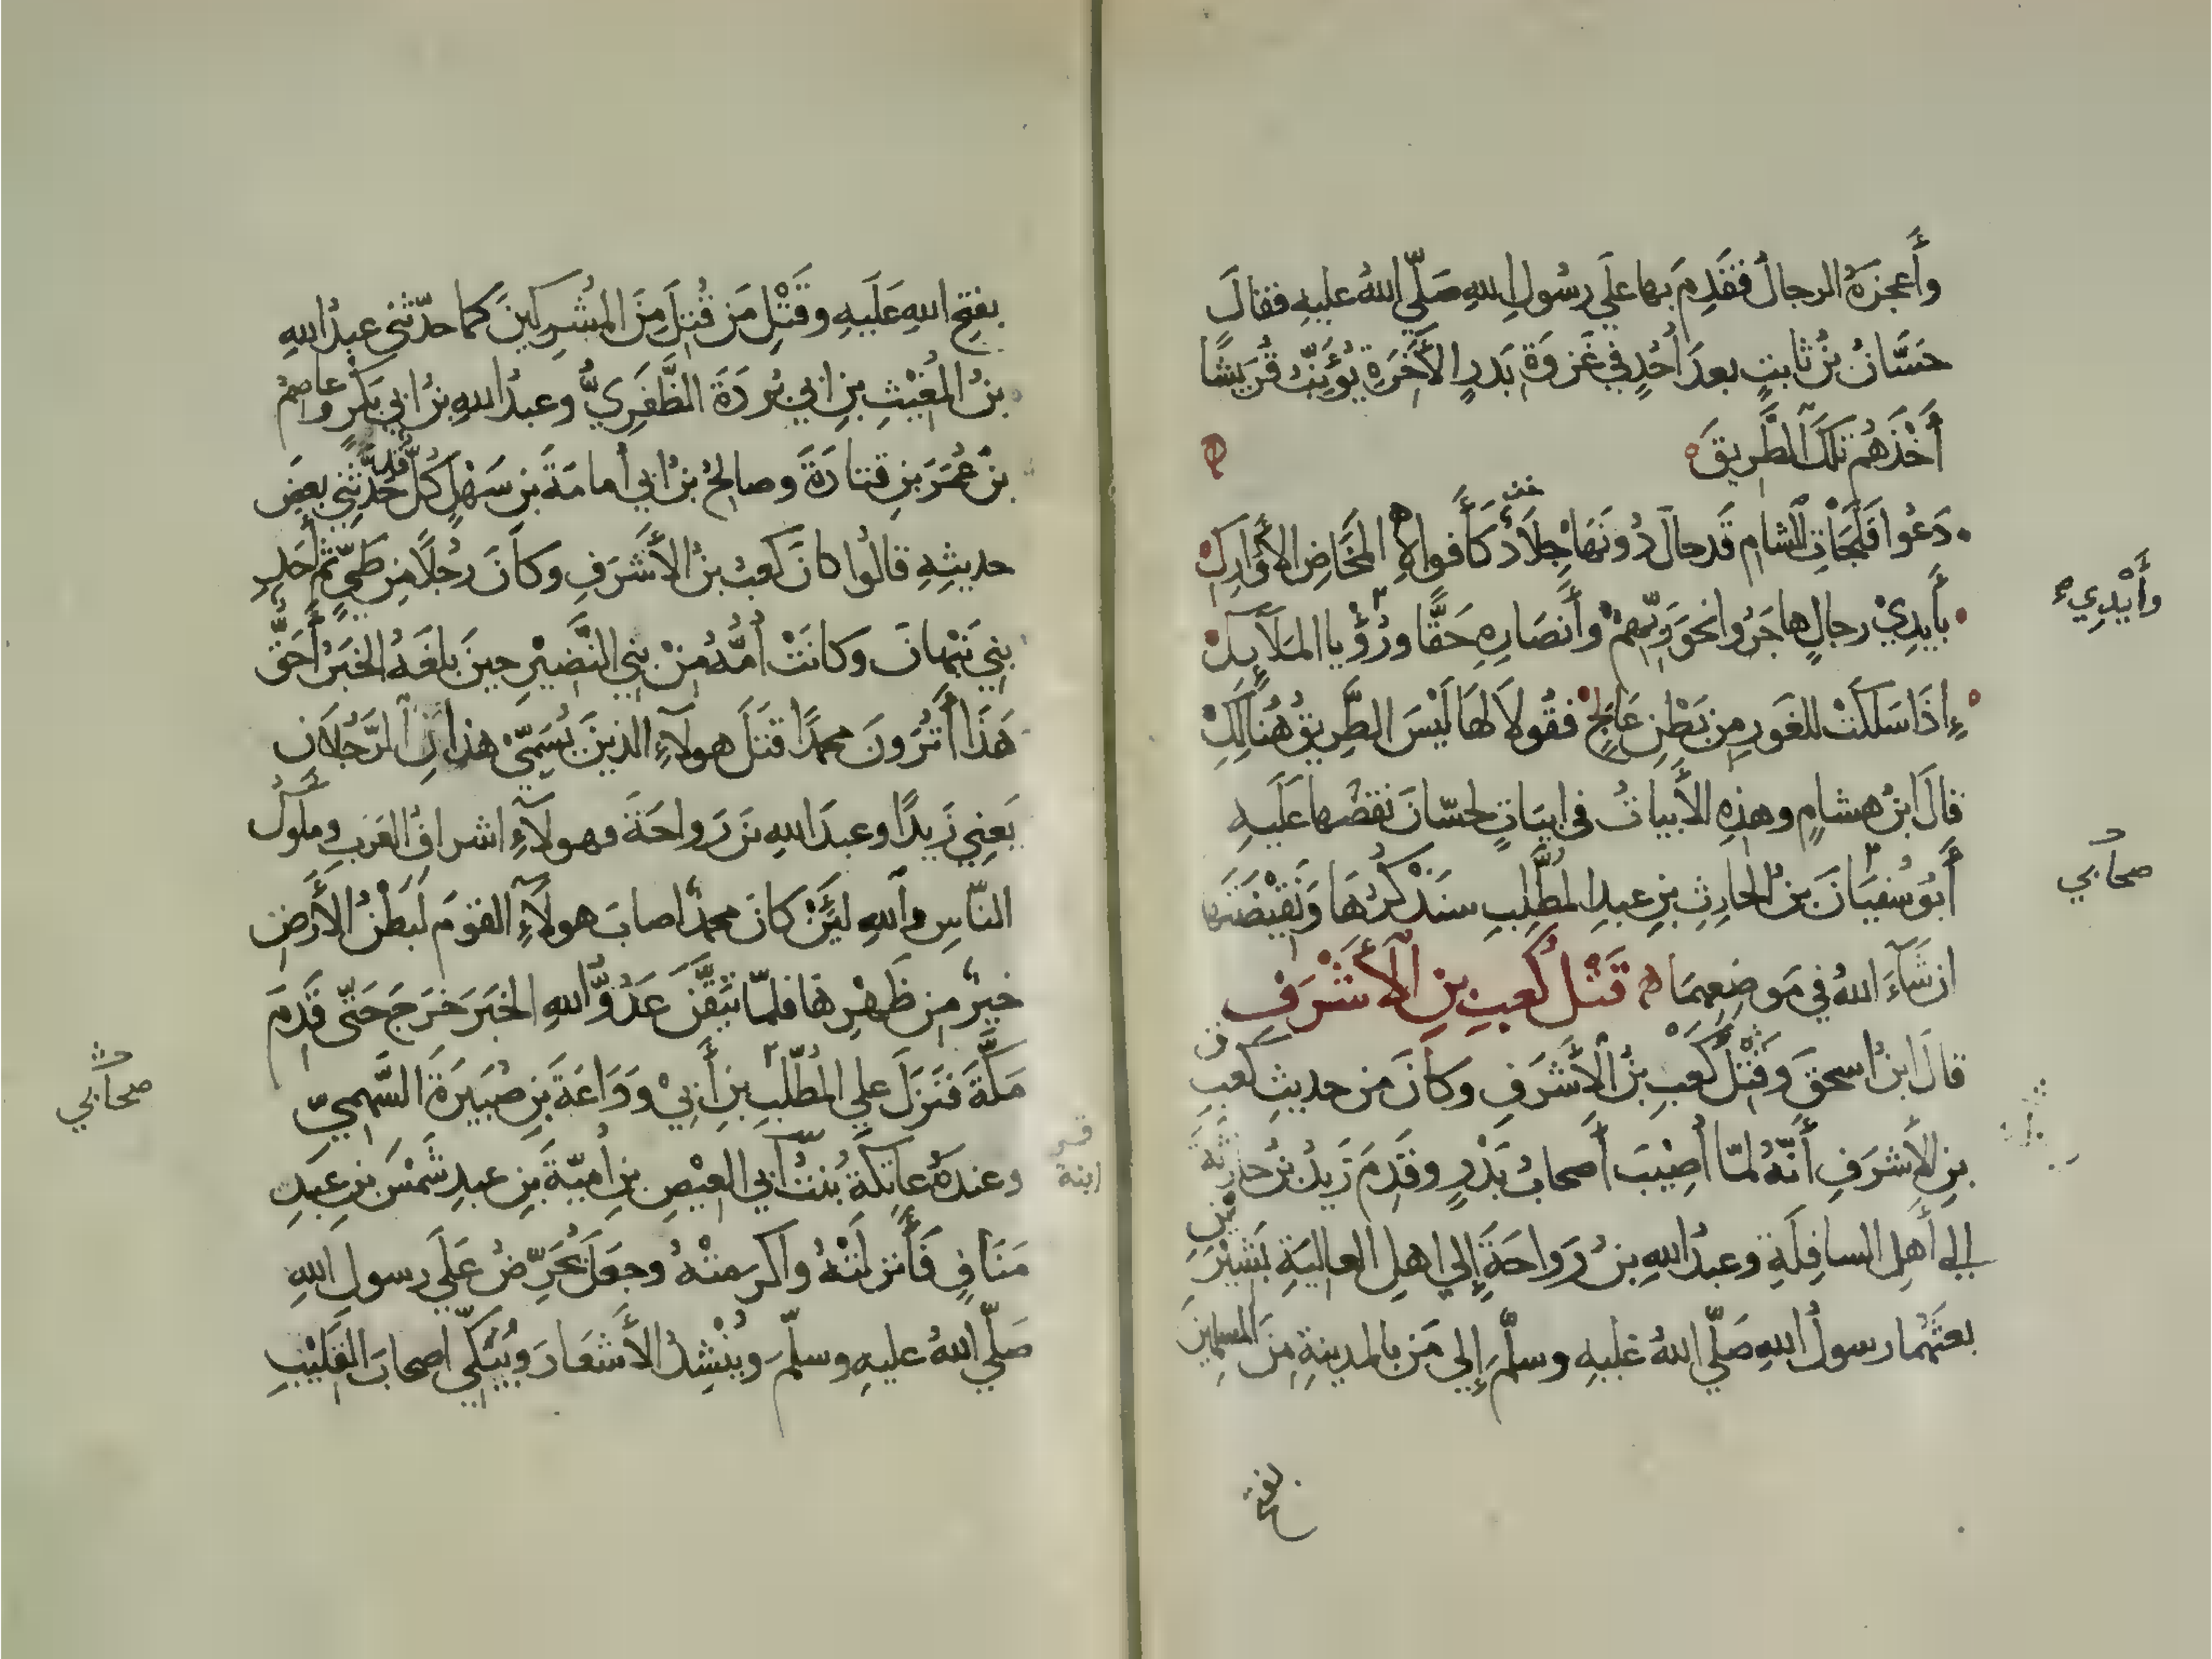 وأَعجزَهُ الرجالُ فقَدِمَ بها علَي رسُولِ اللهِ صَلّي اللهُ عليهِ فقالَ
حَسَّانُ بنُ ثابتٍ بعدَ أُحُدٍ في غَزوَةِ بَدرٍ الأَخَرَةِ يُؤَنِّبُ قُرَيشًا
أَخْذَهُم تلكَ الطَّرِيقَ
دَعُوا فَلَجَاتِ الشام قَد حالَ دُونَهَا جِلَادٌ كَأَفواهِ المَخَاضِ الأَوَارِكِ
بأَيدِيْ رجالٍ هاجَرُوا نحوَ رَبِّهِمْ وأَنصَارِهِ حَقًّا
وأَيْدِي
إِذَا سَلكَتْ للغَورِ مِن بَطْنِ عَالِجٍ فقُولَا لهَا لَيْسَ الطَّرِيقُ هُنَالِكِ
قالَ ابنُ هشامٍ وهذِهِ الأَبياتُ في ابيَاتٍ لحسّانَ نقضَها عَلَيهِ
أَبُو سُفيَانَ بنُ الحارِثِ بنِ عبدِ المطَّلِبِ سنَذْكُرُهَا وَنَقِيْضَتَها
صحابي
ان شَآءَ اللهُ في مَوضِعِهِمَا قَتْل كَعبِ بنِ الأَشْرَفِ
قالَ ابنُ اسحقَ وَقَتْلُ كَعبِ بنِ الأَشَرَفِ وكانَ من حديثِ كَعبِ
بنِ الأَشرَفِ أَنَّهُ لمّا أُصِيْبَ أَصحابُ بَدْرٍ وقَدِمَ زَيدُ بنُ حارثَةَ
إلي أَهلِ السافِلَةِ وعبدُ اللهِ بنُ رَواحَةَ إِلي اهلِ العاليَةِ بَشيْرَيْنِ
بعثَهُما رسولُ اللهِ صَلّي اللهُ عليهِ وسلَّمَ إِلى مَن بالمدينةِ مِنَ المسلمينَ
بفتح
بفتحِ اللهِ عَلَيهِ وقَتْلِ مَن قُتِلَ مِنَ المُشرِكينَ كما حدّثني عبدُ اللهِ
بنُ المُغيْثِ بنِ ابي بُردَةَ الظَّفَرِيُّ وعبدُ اللهِ بنُ ابي بَكرٍ وعاصمُ
بنُ عُمَرَ بنِ قتادَةَ وصالحُ بنُ ابي أُمامَةَ بنِ سَهْلٍ كُلٌّ قد حدَّثَنِي بعضَ
حديثِهِ قالُوا كانَ كَعبُ بنُ الأَشَرَفِ وكانَ رجُلًا مِن طَيٍّ ثم أَحدِ
بَنِي نَبْهانَ وكانَتْ أُمُّهُ مِنْ بَنِي النَّضِيْرِ حينَ بلغَهُ الخبَرُ أَحَقٌّ
هَذَا أَتُرَوْنَ محمدًا قتَلَ هولآءِ الذينَ يُسَمِّيْ هذانِ الرَّجُلَانِ
يَعنِي زَيدًا وعبدَ اللهِ بنَ رَواحَةَ فهولآءِ اشرافُ العَرَبِ وملُوكُ
النّاسِ واللهِ لَئِنْ كانَ محمدٌ اصابَ هولآءِ القومَ لَبَطْنُ الأَرضِ
خيرٌ مِن ظَهْرِها فلمّا تَيَقَّنَ عَدُوُّ اللهِ الخبَرَ خَرَجَ حَتّى قَدِمَ
مَكَّةَ فنَزَلَ علي المُطَّلِبِ بنِ أَبِيْ وَدَاعَةَ بنِ ضُبَيرَةَ السَّهمِيِّ
صحابي
وعندَهُ عاتِكةُ بِنتُ أبي العِيْصِ بنِ أُميّةَ بنِ عبدِ شَمْسَ بنِ عَبدِ
ابنة
مَنَافٍ فَأَنزلَتْهُ وأكرمَتْهُ وجعَلَ يُحَرِّضُ عَلَي رسولِ اللهِ
صَلّي اللهُ عليهِ وسلّمَ ويُنْشِدُ الأَشعَارَ ويُبَكِّي اصحابَ القَلِيْبِ